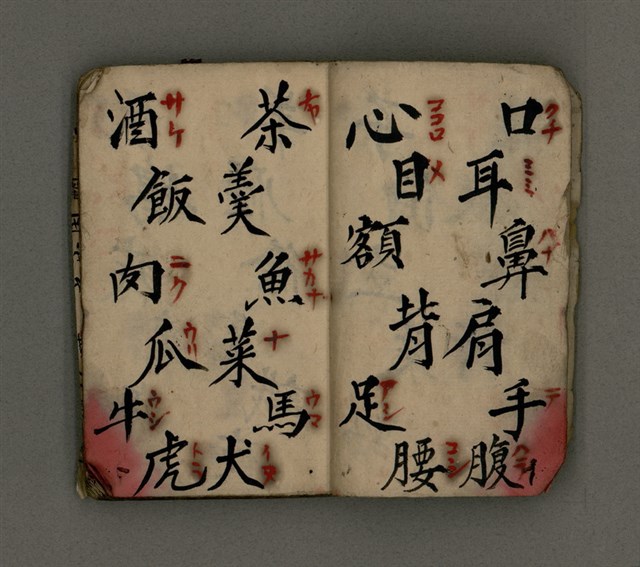 口 クチ
耳 ミミ
鼻 ハナ
肩
手 テ
腹
心 ココロ
目 メ
額
背
足 アシ
腰 コシ
茶
羹
魚 サカナ
菜 ナ
馬 ウマ
犬 イヌ
酒 サケ
飯
肉 ニク
瓜 ウリ
牛 ウシ
虎